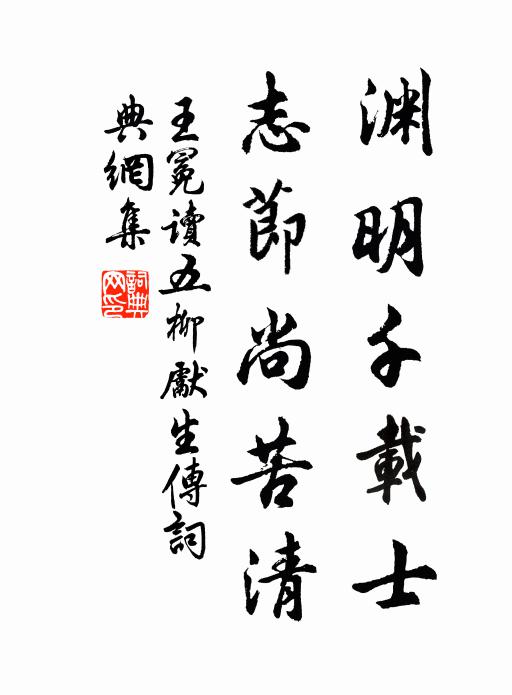 渊明千載士
志節尚苦清
王冕讀五柳獻生傳詞
典網集
詞典网印